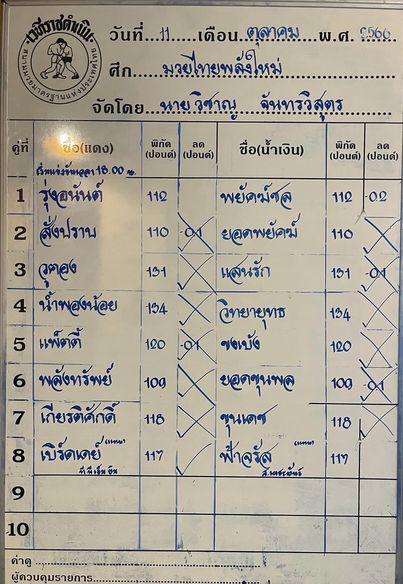 เวทีราชดำเนิน
สนามมวยมาตรฐานแห่งประเทศไทย
วันที่ 11 เดือน ตุลาคม พ.ศ. 2566
ศึก มวยไทยพลังใหม่
จัดโดย นายวิชาญ จันทรวิสูตร
คู่ที่ ชื่อ(แดง) พิกัด (ปอนด์) ลด (ปอนด์) ชื่อ(น้ำเงิน) พิกัด (ปอนด์) ลด (ปอนด์)
เริ่มแข่งขันเวลา 18.00 น.
1 รุ่งอนันต์ 112 พยัคฆ์ชล 112 -0.2
2 สั่งปราบ 110 -0.1 ยอดพยัคฆ์ 110
3 วูตอง 131 แสนรัก 131 -0.1
4 น้ำพองน้อย 134 วิทยายุทธ 134
5 แพ็ตตี้ 120 -0.1 ชงเบ้ง 120
6 พลังทรัพย์ 109 ยอดขุนพล 109 -0.1
7 เกียรติศักดิ์ 118 ขุนเดช 118
8 เบิร์ดเดย์ (แทน) 117 ฟ้าจรัล (แทน) 117
9
10
ค่าดู
ผู้ควบคุมรายการ